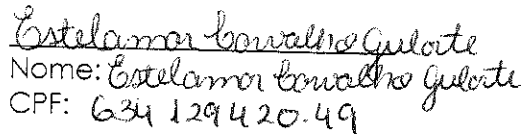 Estelamar Carvalho Gularte
Nome: Estelamar Carvalho Gularte
CPF: 634 129 420-49